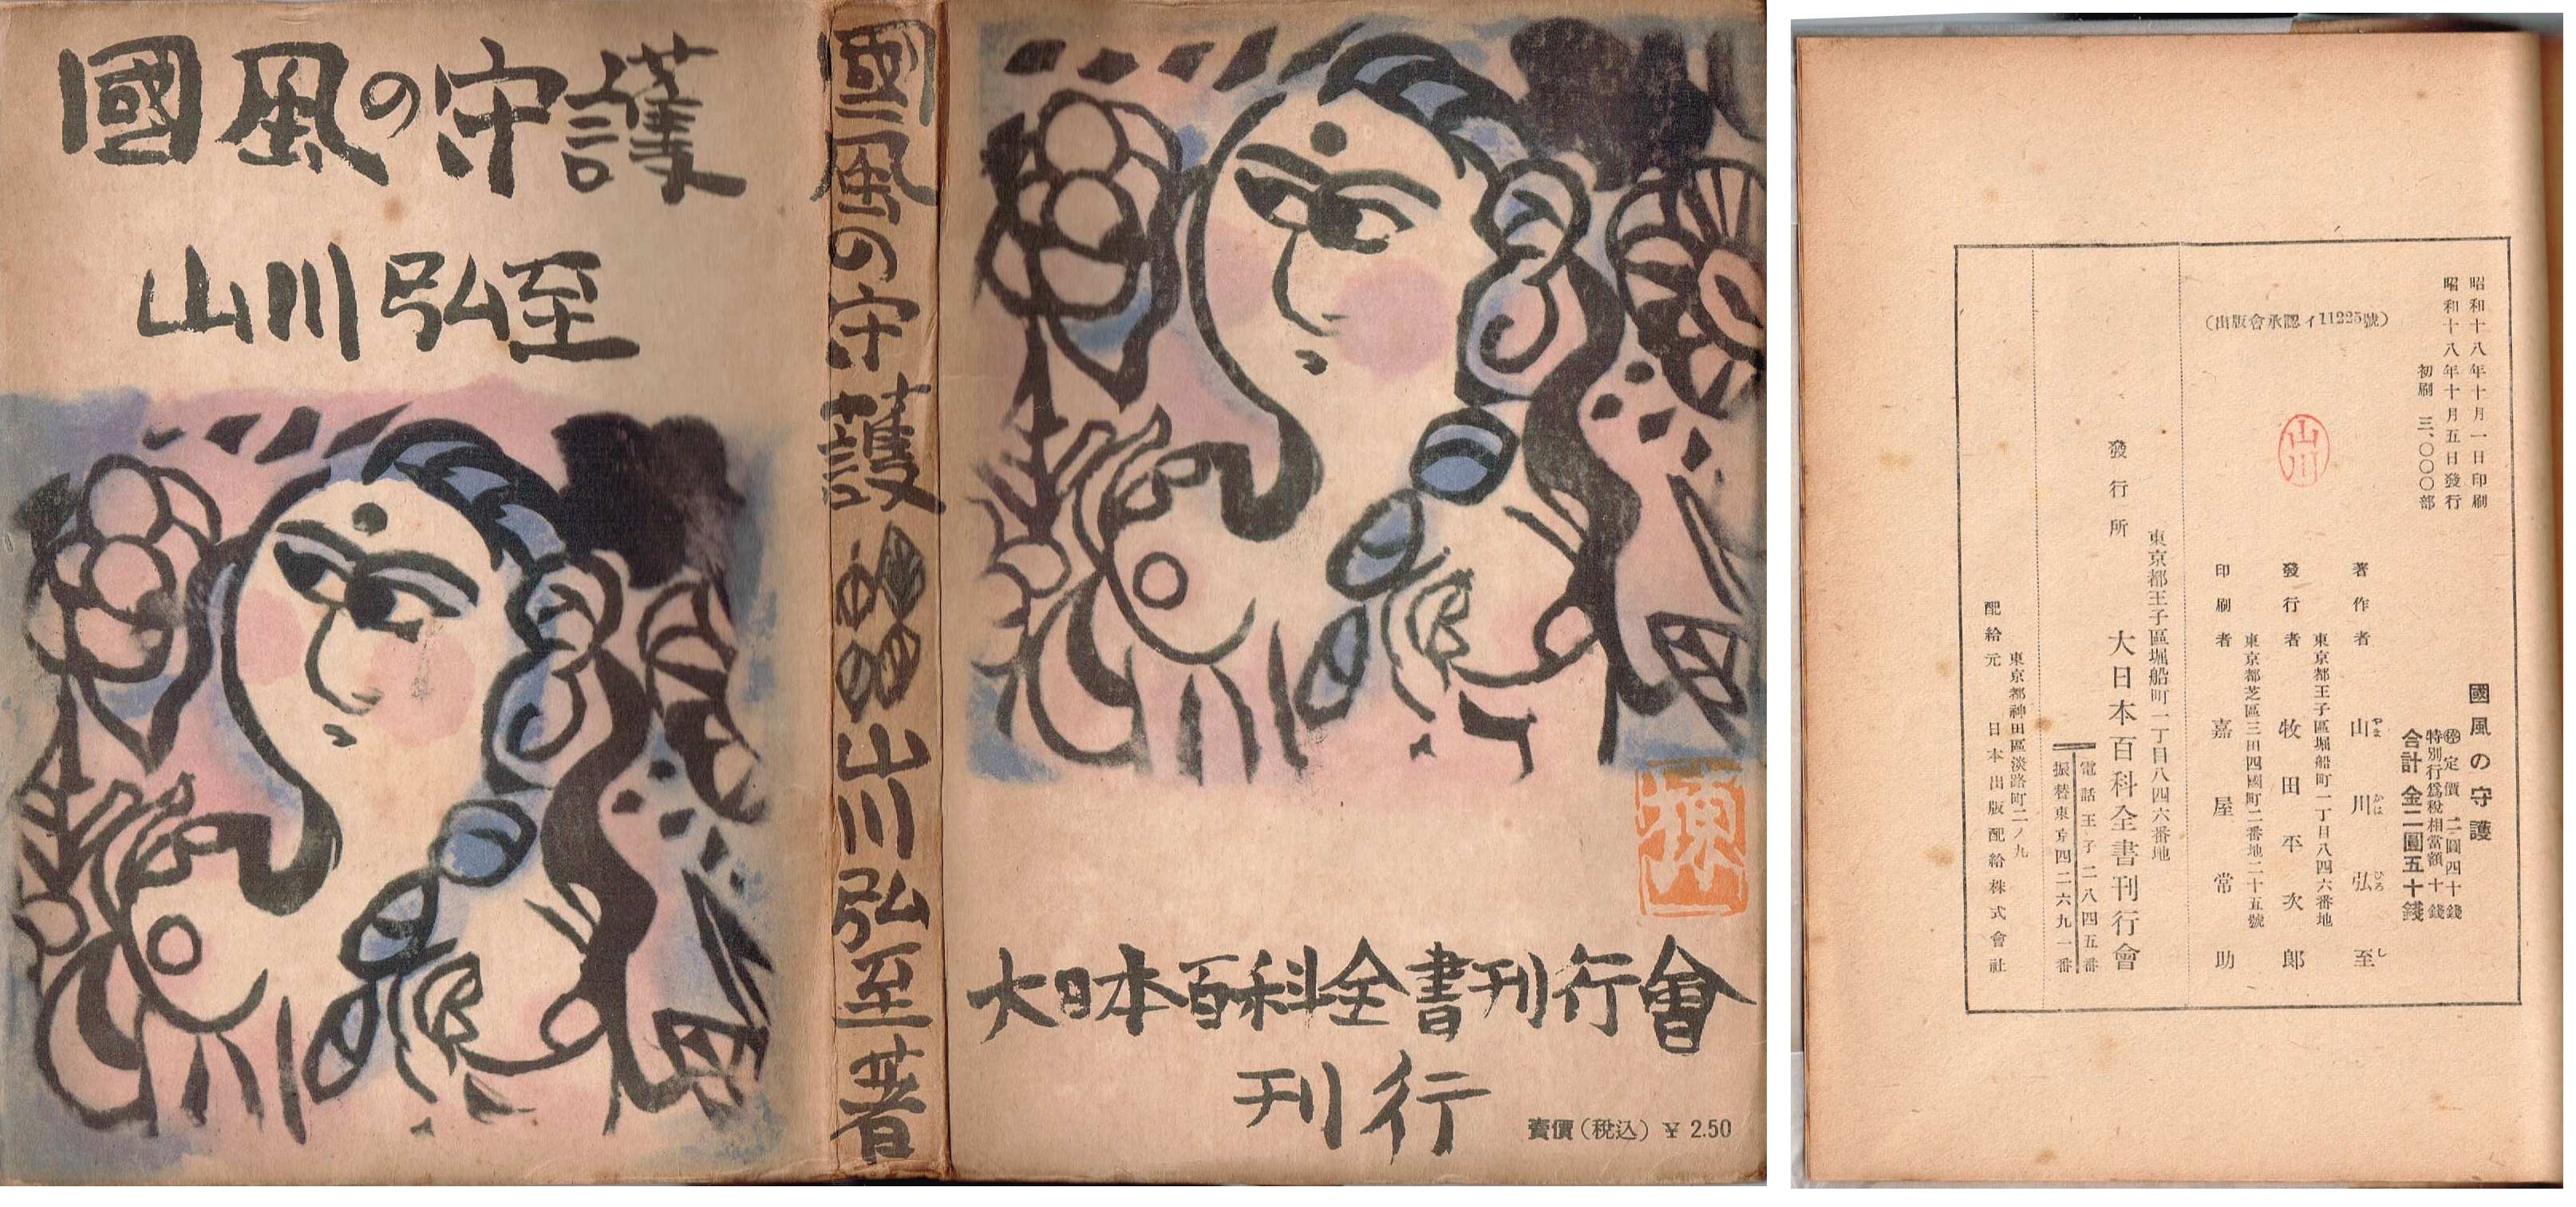 國風の守護
山川弘至
國風の守護
山川弘至著
棟
大日本百科全書刊行會
刊行
賣價(税込)¥2.50
昭和十八年十月一日印刷
昭和十八年十月五日發行
初刷 三、〇〇〇部
(出版會承認イ11225號)
山川
國風の守護
㊞定價 二圓四十錢
特別行爲税相當額 十錢
合計金二圓五十錢
著作者 山川弘至
やま かは ひろ し
東京都王子區堀船町一丁目八四六番地
發行者 牧田平次郎
東京都芝區三田四國町二番地二十五號
印刷者 嘉屋常助
東京都王子區堀船町一丁目八四六番地
發行所 大日本百科全書刊行會
電話王子二八四五番
振替東京四二六九一番
東京都神田區淡路町二ノ九
配給元 日本出版配給株式會社